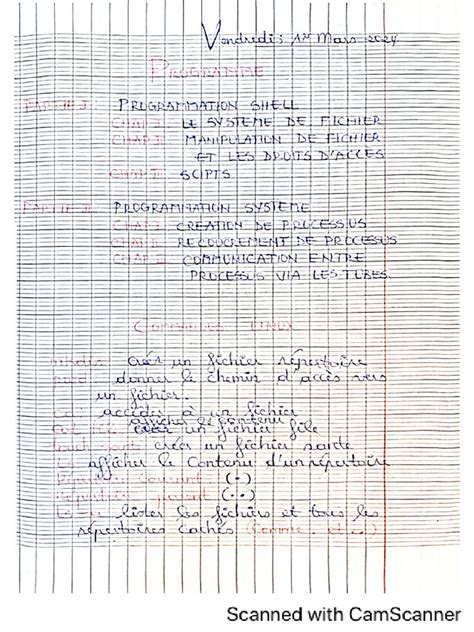 Vendredis 1er Mars 2024
PROGRAMME
PARTIE I: PROGRAMMATION SHELL
CHAP I: LE SYSTEME DE FICHIER
CHAP II: MANIPULATION DE FICHIER
ET LES DROITS D'ACCES
CHAP III: SCIPTS
PARTIE II: PROGRAMMATION SYSTEME
CHAP I: CREATION DE PROCESSUS
CHAP II: RECOUCREMENT DE PROCESSUS
CHAP III: COMMUNICATION ENTRE
PROCESSUS VIA LES TUBES.
COMMANDES LINUX
mkdir créer un fichier répertoire
pwd: donner le chemin d'accès vers
un fichier.
cd: accéder à un fichier
afficher le contenu
Cat file créer un fichier file
touch créer un fichier
ls afficher le contenu d'un répertoire
répertoire courant (.)
répertoire parent (..)
lister les fichiers et tous les
répertoires cachés (comme . et ..)
Scanned with CamScanner